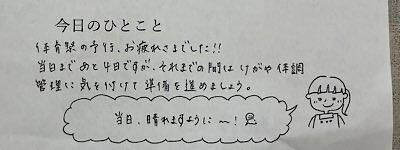 今日のひとこと
体育祭の予行、お疲れさまでした!!
当日まであと4日ですが、それまでの間は けがや 体調
管理に気を付けて 準備を進めましょう。
当日、晴れますように 〜!